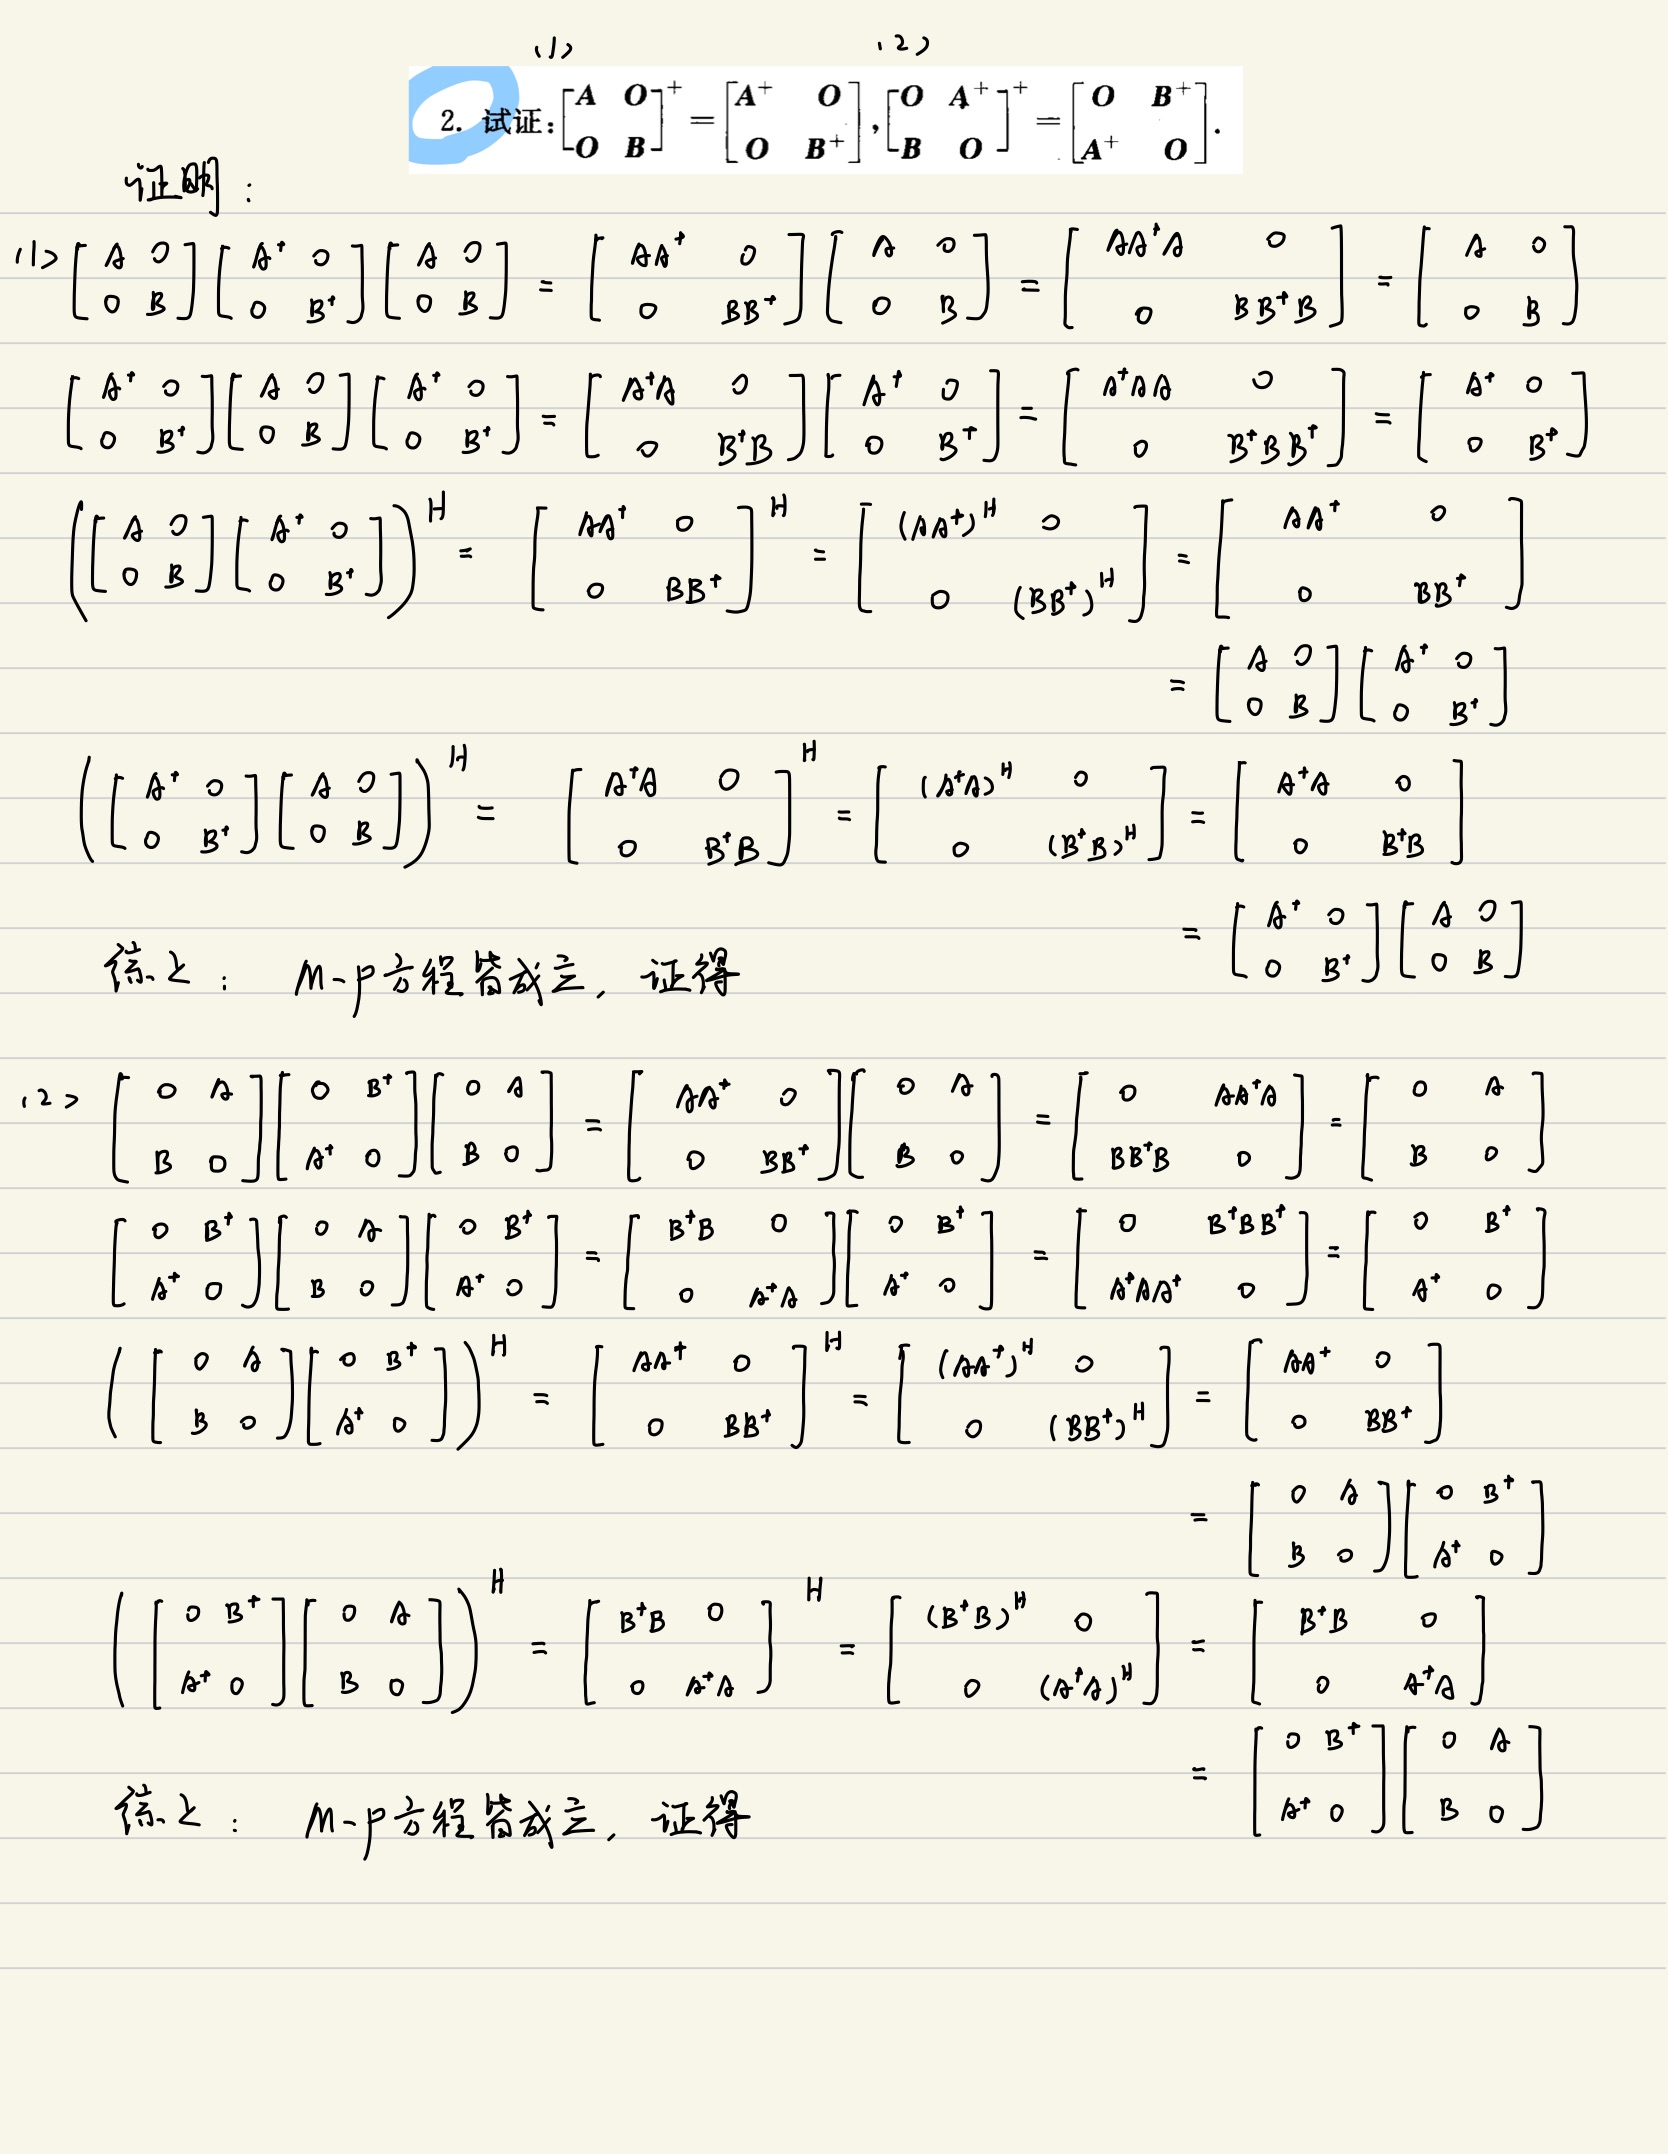 (1) (2)
2. 试证: [A O; O B]⁺ = [A⁺ O; O B⁺], [O A⁺; B O]⁺ = [O B⁺; A⁺ O].
证明:
(1) [A 0; 0 B] [A⁺ 0; 0 B⁺] [A 0; 0 B] = [AA⁺ 0; 0 BB⁺] [A 0; 0 B] = [AA⁺A 0; 0 BB⁺B] = [A 0; 0 B]
[A⁺ 0; 0 B⁺] [A 0; 0 B] [A⁺ 0; 0 B⁺] = [A⁺A 0; 0 B⁺B] [A⁺ 0; 0 B⁺] = [A⁺AA 0; 0 B⁺BB⁺] = [A⁺ 0; 0 B⁺]
([A 0; 0 B] [A⁺ 0; 0 B⁺])ᴴ = [AA⁺ 0; 0 BB⁺]ᴴ = [(AA⁺)ᴴ 0; 0 (BB⁺)ᴴ] = [AA⁺ 0; 0 BB⁺]
= [A 0; 0 B] [A⁺ 0; 0 B⁺]
([A⁺ 0; 0 B⁺] [A 0; 0 B])ᴴ = [A⁺A 0; 0 B⁺B]ᴴ = [(A⁺A)ᴴ 0; 0 (B⁺B)ᴴ] = [A⁺A 0; 0 B⁺B]
= [A⁺ 0; 0 B⁺] [A 0; 0 B]
综上: M-P方程皆成立, 证得
(2) [0 A; B 0] [0 B⁺; A⁺ 0] [0 A; B 0] = [AA⁺ 0; 0 BB⁺] [0 A; B 0] = [0 AA⁺A; BB⁺B 0] = [0 A; B 0]
[0 B⁺; A⁺ 0] [0 A; B 0] [0 B⁺; A⁺ 0] = [B⁺B 0; 0 A⁺A] [0 B⁺; A⁺ 0] = [0 B⁺BB⁺; A⁺AA⁺ 0] = [0 B⁺; A⁺ 0]
([0 A; B 0] [0 B⁺; A⁺ 0])ᴴ = [AA⁺ 0; 0 BB⁺]ᴴ = [(AA⁺)ᴴ 0; 0 (BB⁺)ᴴ] = [AA⁺ 0; 0 BB⁺]
= [0 A; B 0] [0 B⁺; A⁺ 0]
([0 B⁺; A⁺ 0] [0 A; B 0])ᴴ = [B⁺B 0; 0 A⁺A]ᴴ = [(B⁺B)ᴴ 0; 0 (A⁺A)ᴴ] = [B⁺B 0; 0 A⁺A]
= [0 B⁺; A⁺ 0] [0 A; B 0]
综上: M-P方程皆成立, 证得